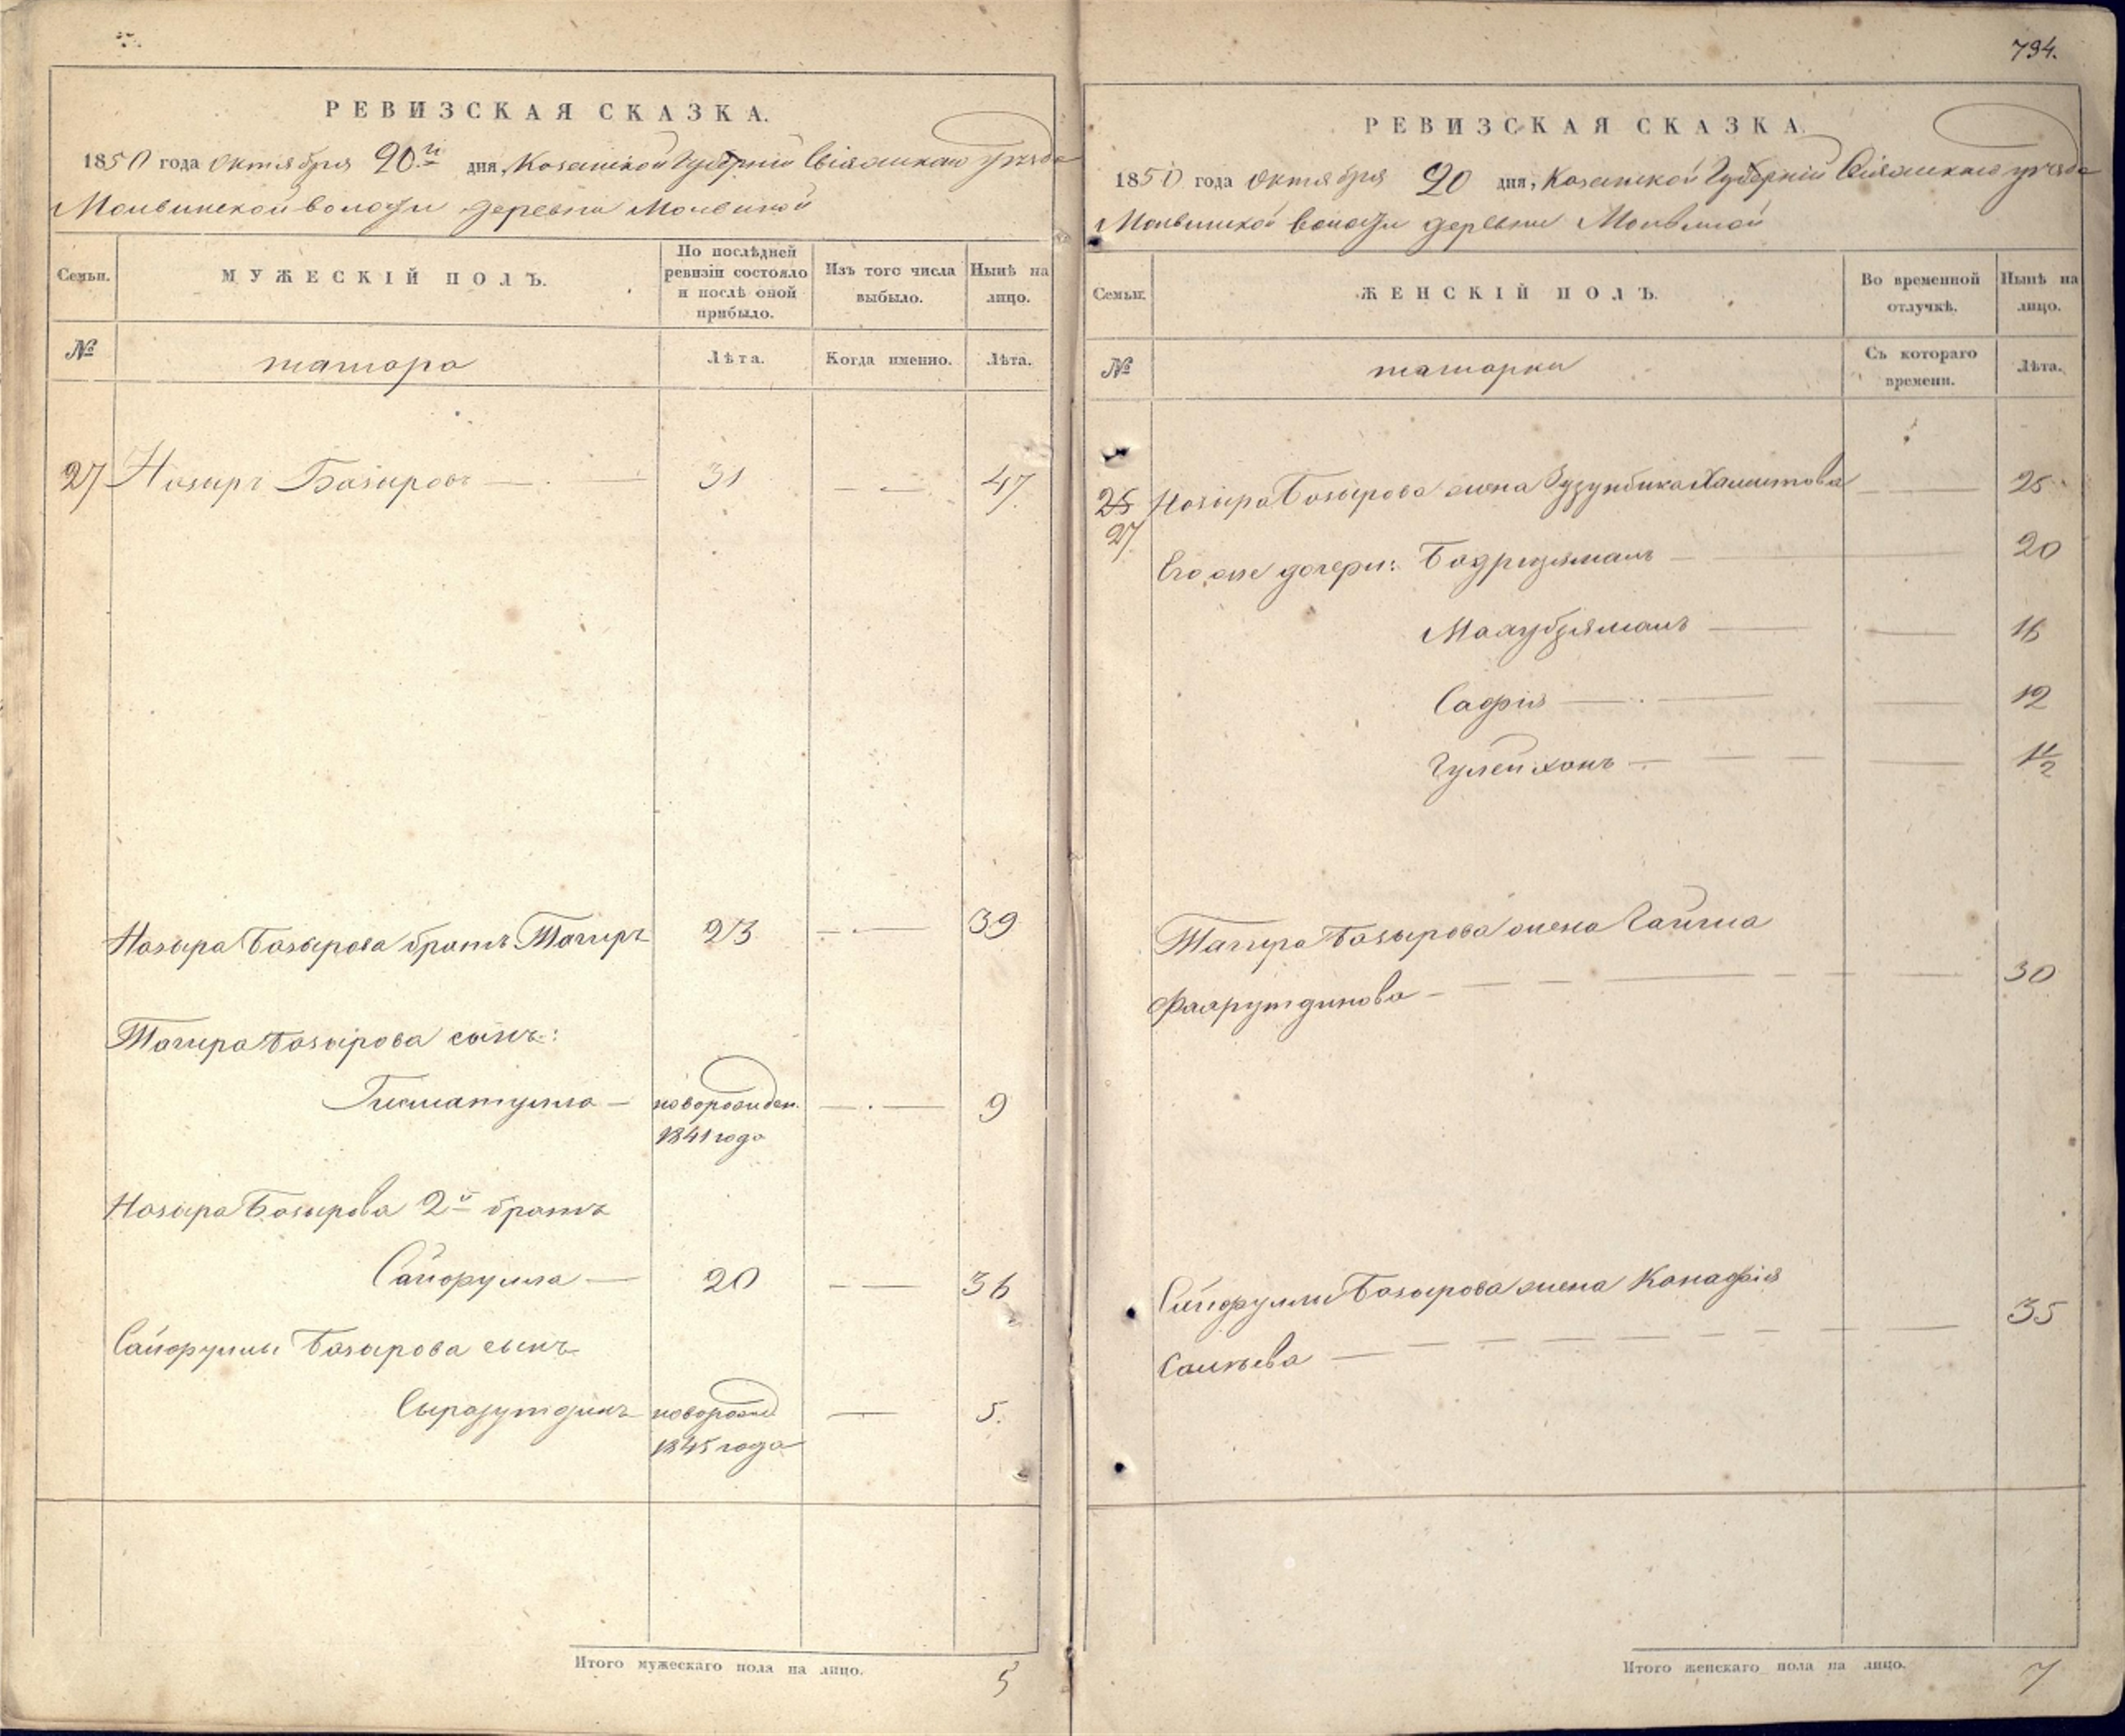 794.
РЕВИЗСКАЯ СКАЗКА.
1850 года октября 20й дня, Казанской Губернiи Свiяжскаго уѣзда
Молвинской волости деревни Молвиной
Семьи.
МУЖЕСКIЙ ПОЛЪ.
По послѣдней ревизiи состояло и послѣ оной прибыло.
Изъ того числа выбыло.
Нынѣ на лицо.
№
татара
Лѣта.
Когда именно.
Лѣта.
27 Назыръ Базыровъ — 31 — — 47.
Назыра Базырова братъ Тагиръ 23 — — 39
Тагира Базырова сынъ:
Гисматулла — новорожден. — — 9
1841 года
Назыра Базырова 2й братъ
Сайфулла — 20 — — 36
Сайфуллы Базырова сынъ
новорожд — 5.
1845 года
Итого мужескаго пола на лицо. 5
РЕВИЗСКАЯ СКАЗКА.
1850 года октября 20 дня, Казанской Губернiи Свiяжскаго уѣзда
Молвинской волости деревни Молвиной
Семьи.
ЖЕНСКIЙ ПОЛЪ.
Во временной отлучкѣ.
Нынѣ на лицо.
№
татарки
Съ котораго времени.
Лѣта.
25 Назыра Базырова жена Хамитова — 25
27
Его же дочери: — 20
— 16
Сафiя — 12
— 1 1/2
Тагира Базырова жена
— 30
Сайфуллы Базырова жена
— 35
Итого женскаго пола на лицо. 7